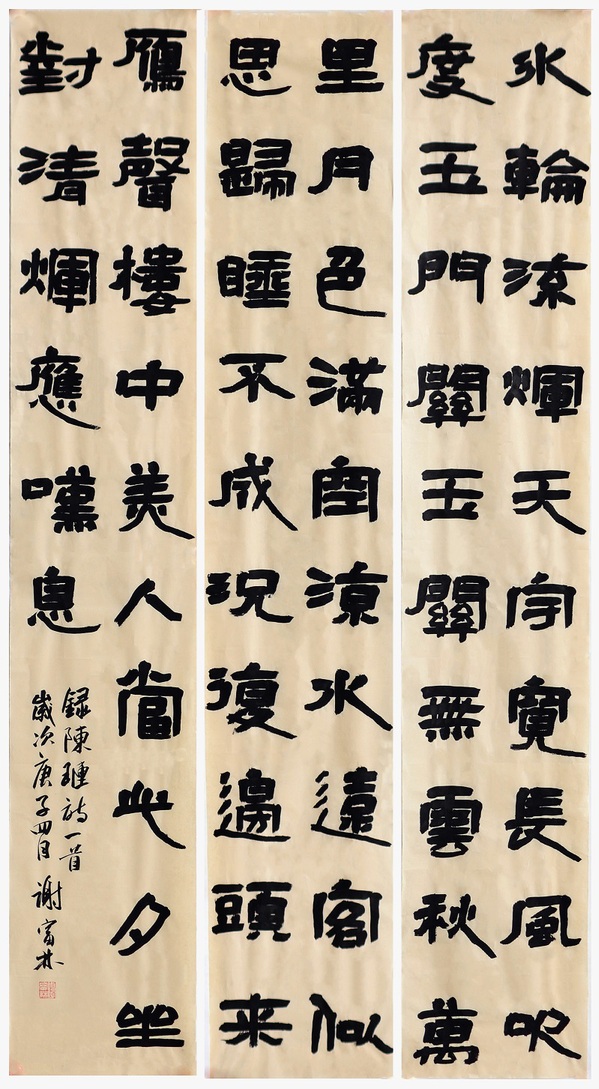 氷輪流煇天宇寬長風吹
度玉門關玉關無雲秋萬
里月色滿空涼水遠客似
思歸睡不成況復邊頭来
鴈聲樓中美人當此夕坐
對清煇應嘆息
録陳璡詩一首
歲次庚子四月謝富林